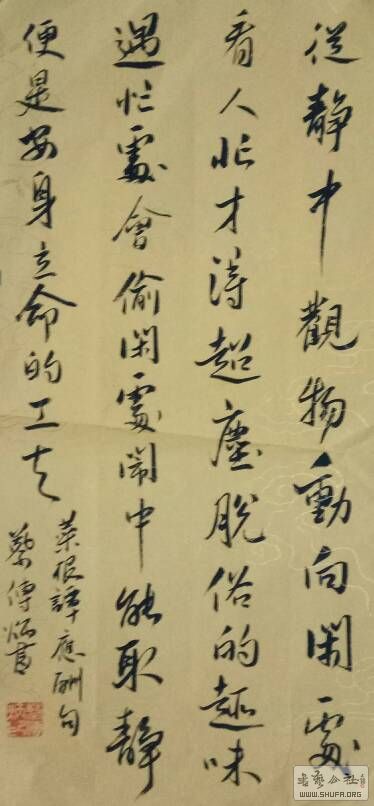 從靜中觀物動向閑處
看人忙才得超塵脫俗的趣味
遇忙處會偷閑處鬧中能取靜
便是安身立命的工夫
菜根譚應酬句
蔡傳炳書
書藝公社
WWW.SHUFA.ORG